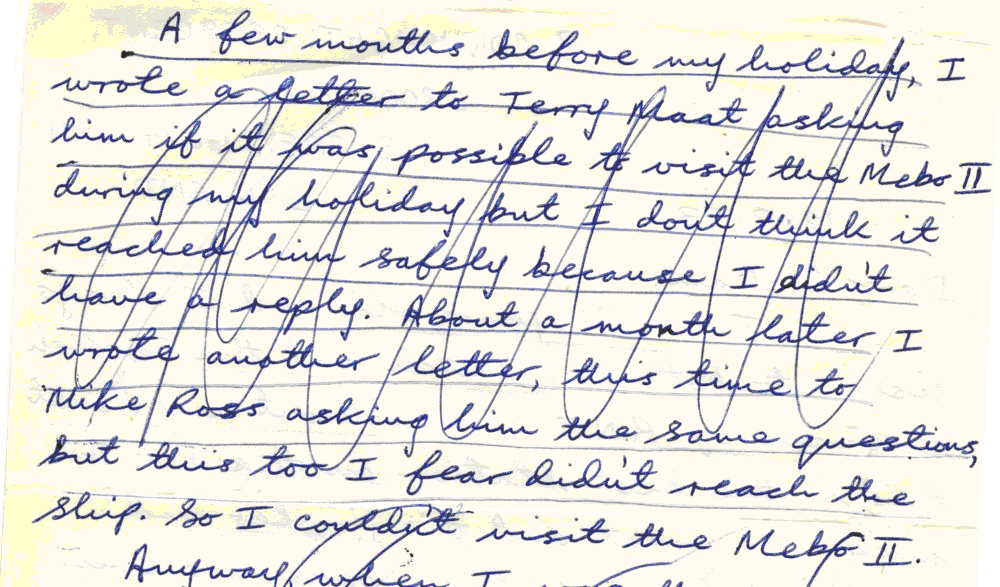 A few months before my holiday, I
wrote a letter to Terry Maat asking
him if it was possible to visit the Mebo II
during my holiday but I don't think it
reached him safely because I didn't
have a reply. About a month later I
wrote another letter, this time to
Mike Ross asking him the same questions,
but this too I fear didn't reach the
ship. So I couldn't visit the Mebo II.
Anyway when I